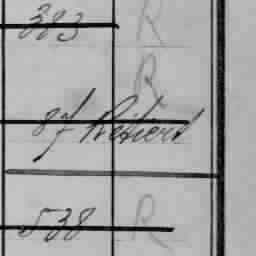 383 R
R
87 Retierd
538 R